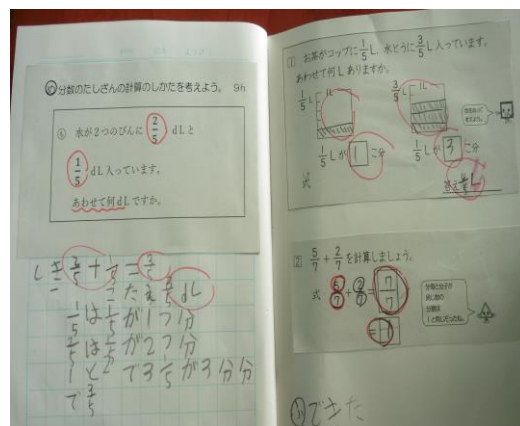 め 分数のたしざんの計算のしかたを考えよう。 9h
⑥ 水が2つのびんに 2/5 dLと
1/5 dL入っています。
あわせて何dLですか。
しき 2/5 + 1/5 = 3/5
こたえ 3/5 dL
1/5は1/5が1つ分
2/5は1/5が2つ分
1と2で3 1/5が3分分
で3/5
① お茶がコップに 1/5 L、水とうに 3/5 L 入っています。
あわせて何Lありますか。
1/5 L 1L 3/5 L 1L
1/5 Lが 1 こ分 1/5 Lが 3 こ分
式
答え 4/5 L
② 5/7 + 2/7 を計算しましょう。
式 5/7 + 2/7 = 7/7
= 1
分母と分子が
同じ数の
分数は
1と同じだったね。
できた